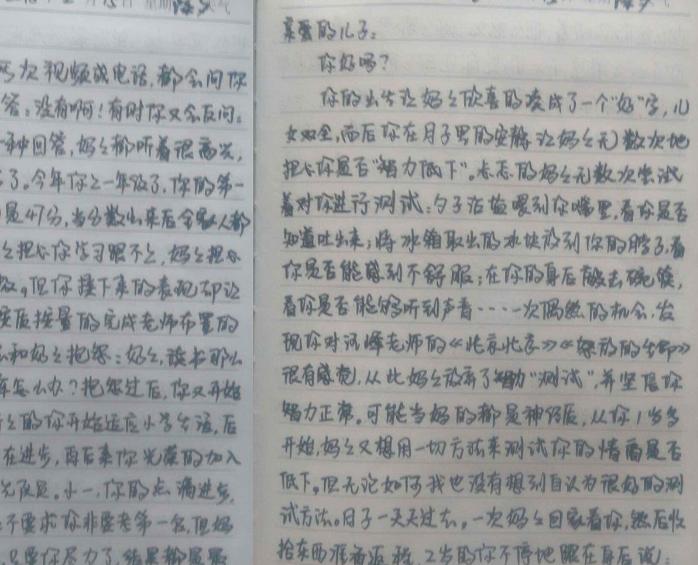 次视频或电话,都会问你
答:没有啊!有时你又会反问:
种回答,妈妈都听着很高兴,
了。今年你上一年级了,你的第一
是47分,当分数出来后全家人都
担心你学习跟不上,妈妈担心
。但你接下来的表现却让
按质按量的完成老师布置的
和妈妈抱怨:妈妈,读书那么
怎么办?抱怨过后,你又开始
的你开始适应小学生活,后
在进步,再后来你光荣的加入
先队员。小一,你的点滴进步,
不要求你非要考第一名,但妈
只要你尽力了,结果都是最
亲爱的儿子:
你好吗?
你的出生让妈妈欣喜的凑成了一个“好”字,儿
女双全,而后你在月子里的安静让妈妈无数次地
担心你是否“智力低下”。忐忑的妈妈无数次尝试
着对你进行测试:勺子沾盐喂到你嘴里,看你是否
知道吐出来;将冰箱取出的冰块放到你的脖子,看
你是否能感到不舒服;在你的身后敲击碗筷,
看你是否能够听到声音……一次偶然的机会,发
现你对汪峰老师的《北京北京》《怒放的生命》
很有感觉,从此妈妈放弃了“测试”,并坚信你
智力正常。可能当妈的都是神经质,从你1岁多
开始,妈妈又想用一切方法来测试你的情商是否
低下,但无论如何我也没有想到自认为很好的测
试方法。日子一天天过去。一次妈妈回家看你,然后收
拾东西准备返程,2岁的你不停地跟在身后说: